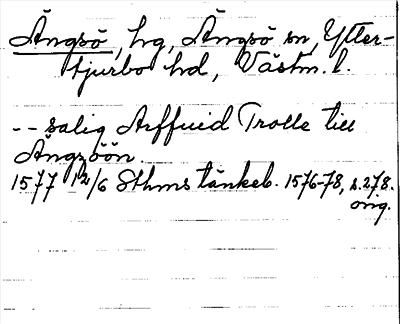 Ängsö, hg, Ängsö sn, Ytter-
tjurbo hd, Västm. l.
-- salig Arffuid Trolle till
Ängzöön.
1577 12/6 Sthms tänkeb. 1576-78, s. 278.
orig.